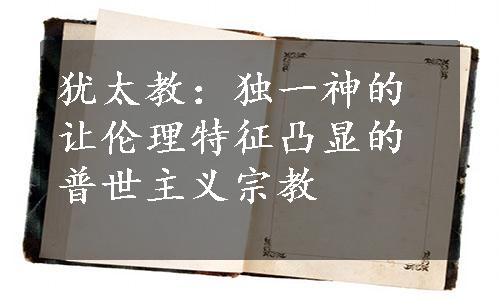 犹太教：独一神的
让伦理特征凸显的
普世主义宗教